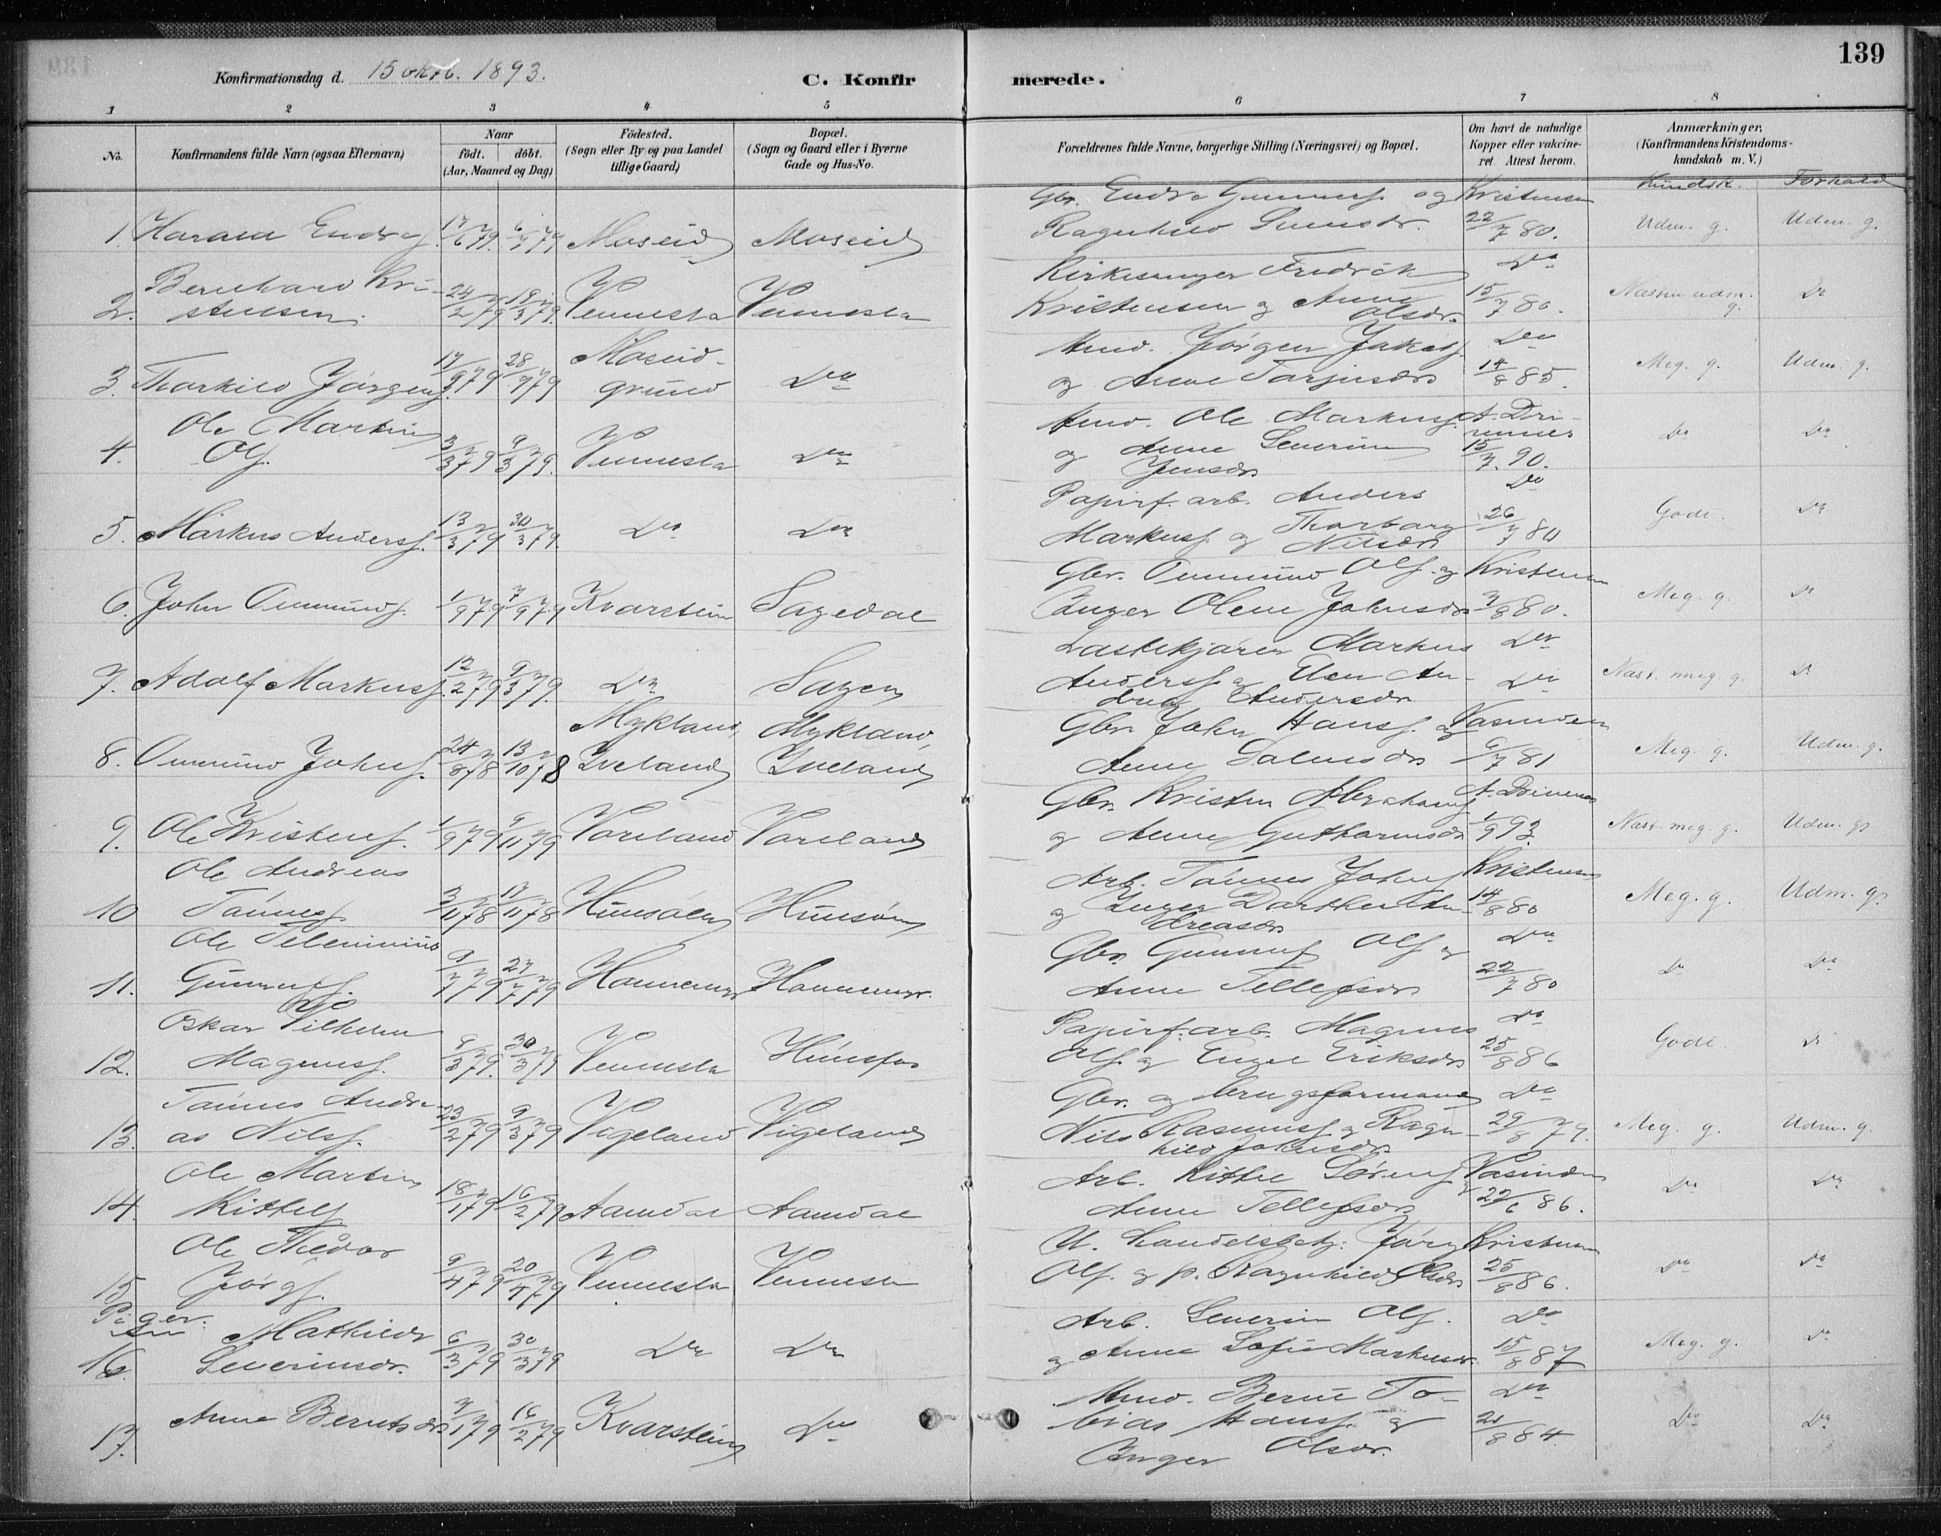 139
Konfirmationsdag d. 15 oktb. 1893. C. Konfirmerede.
1 2 3 4 5 6 7 8
No. Konfirmandens fulde Navn (ogsaa Efternavn) Naar födt. döbt. (Aar, Maaned og Dag) Födested. (Sogn eller By og paa Landet tillige Gaard) Bopæl. (Sogn og Gaard eller i Byerne Gade og Hus-No. Forældrenes fulde Navne, borgerlige Stilling (Næringsvei) og Bopæl. Om havt de naturlige Kopper eller vakcineret. Attest herom. Anmærkninger. (Konfirmandens Kristendomskundskab m. V.)
Kundsk. Forhold
Gbr. Endre Gunnufs. og Kristensen
1. Harald Endres. 17/6 79. 6/7 79 Moseid Moseid Ragnhild 22/7 80. Udm. g. Udm. g.
Bernhard Kri- Kirkesanger Fredrik Do
2. stensen. 24/2 79 18/3 79. Vennesla Vennesla Kristensen og Anne Olsdr. 15/7 80. Næsten udm. g. Do
Moseid- Ind. Jørgen Jakobs. Do
3. Thorkild Jørgens. 17/9 79 28/9 79 grund Do og Anne Tarjusdr. 14/8 85. Meg. g. Udm. g.
Ole Martin Ind. Ole Markus.
4. Ols. 3/3 79 9/3 79. Vennesla Do og Anne Severine Jensdr. 15/7. 90. Do Do
Papirf. arb. Anders Do
5. Markus Anders. 13/3 79 30/3 79. Do Do Markus. og Thorborg Nilsdr. 26/7 80 Godt. Do
Gbr. Ommund Ols. og Kristensen
6. John Ommunds. 1/9 79 7/9 79 Kvarstein Sagedal Inger Olene Johnsdr. 80. Meg. g. Do
Lastekjører Markus Do
7. Adolf Markus. 12/2 79 9/3 79. Do Sagen Anders. og Elen Andrea Andersdr. Do Næst. meg. g. Do
Mykland, Mykland, Gbr. John Hans. og
8. Ommund Johns. 24/8 78 13/10 78 Iveland Iveland Anne Salvesdr. 6/7 81 Meg. g. Udm. g.
Gbr. Kristen Abrahams.
9. Ole Kristens. 1/9 79 9/11 79 Voreland Voreland og Anne Guttormsdr. 1/9 93. Næst. meg. g. Udm. g.
Ole Andreas Arb. Tønnes Johns. Kristensen
10 Tønnes. 3/11 78 17/11 78 Hunsøen Hunsøen og Inger Dorthea Andreasdr. 14/8 80 Meg. g. Udm. g.
Ole Gbr. Gunnuf Ols. og Do
11. Gunnufs. 27/7 79 Homemyr Homemyr. Anne Tellefsdr. 22/7 80 Do Do
Oskar Vilhelm Papirf. arb. Magnus Do
12. Magnus. 8/3 79. 30/3 79 Vennesla Hunsfos Ols. og Inger Eriksdr. 25/8 86 Godt. Do
Tønnes Andre- Gbr. og brugsformand Do
13. as Nils. 23/2 79 9/3 79 Vigeland Vigeland Nils Rasmus. og Ragnhild Johnsdr. 29/8 79. Meg. g. Udm. g.
Ole Martin Arb. Kittel Sørens.
14. Kittels. 18/1 79 16/2 79 Aamdal Aamdal Anne Tellefsdr. 22/6 86. Do Do
Ole Thedor U. Handelsbetj. Jørg Kristensen
15 Jørgs. 9/4 79 20/4 79 Vennesla Vennesla Ols. og p. Ragnhild Olsdr. 25/8 86. Do Do
Piger. Arb. Severin Ols. Do
16. Mathilde Severinsdr. 6/3 79 30/3 79 Do Do og Anne Sofie Markusdr. 15/8 87 Meg. g. Do
Ind. Bernt To- Do
17. Anne Berntsdr. 7/1 79 16/2 79 Kvarstein Do bias Hans. og Inger Olsdr. 21/8 84. Do Do